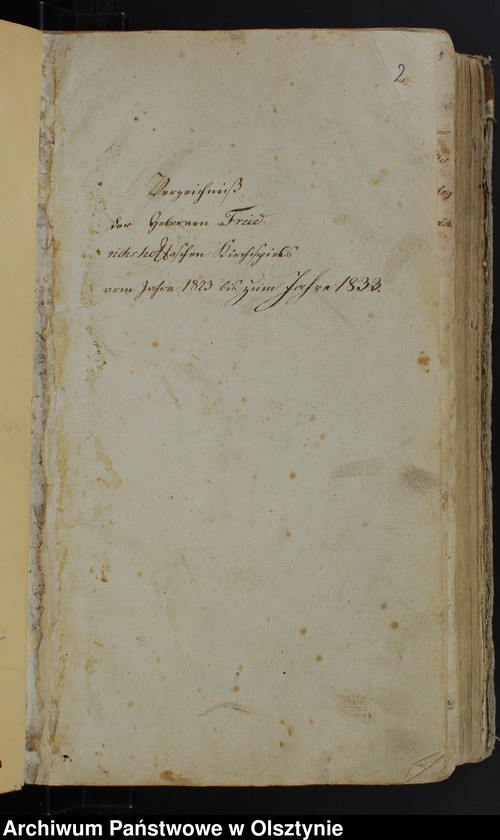 2
Verzeichniß
der Gebornen Fried
richshoffschen Kirchspiels
vom Jahre 1823 bis zum Jahre 1833.
Archiwum Państwowe w Olsztynie